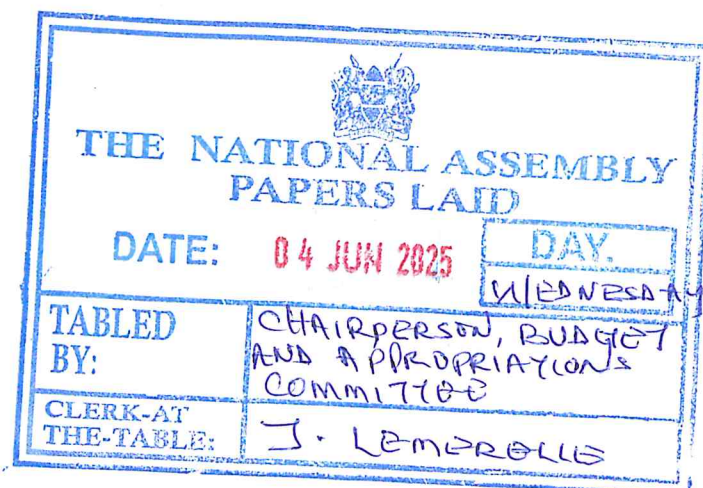 THE NATIONAL ASSEMBLY
PAPERS LAID
DATE: 04 JUN 2025
DAY.
WEDNESDAY
TABLED BY:
CHAIRPERSON, BUDGET
AND APPROPRIATIONS
COMMITTEE
CLERK-AT THE-TABLE:
J. LEMERELLE